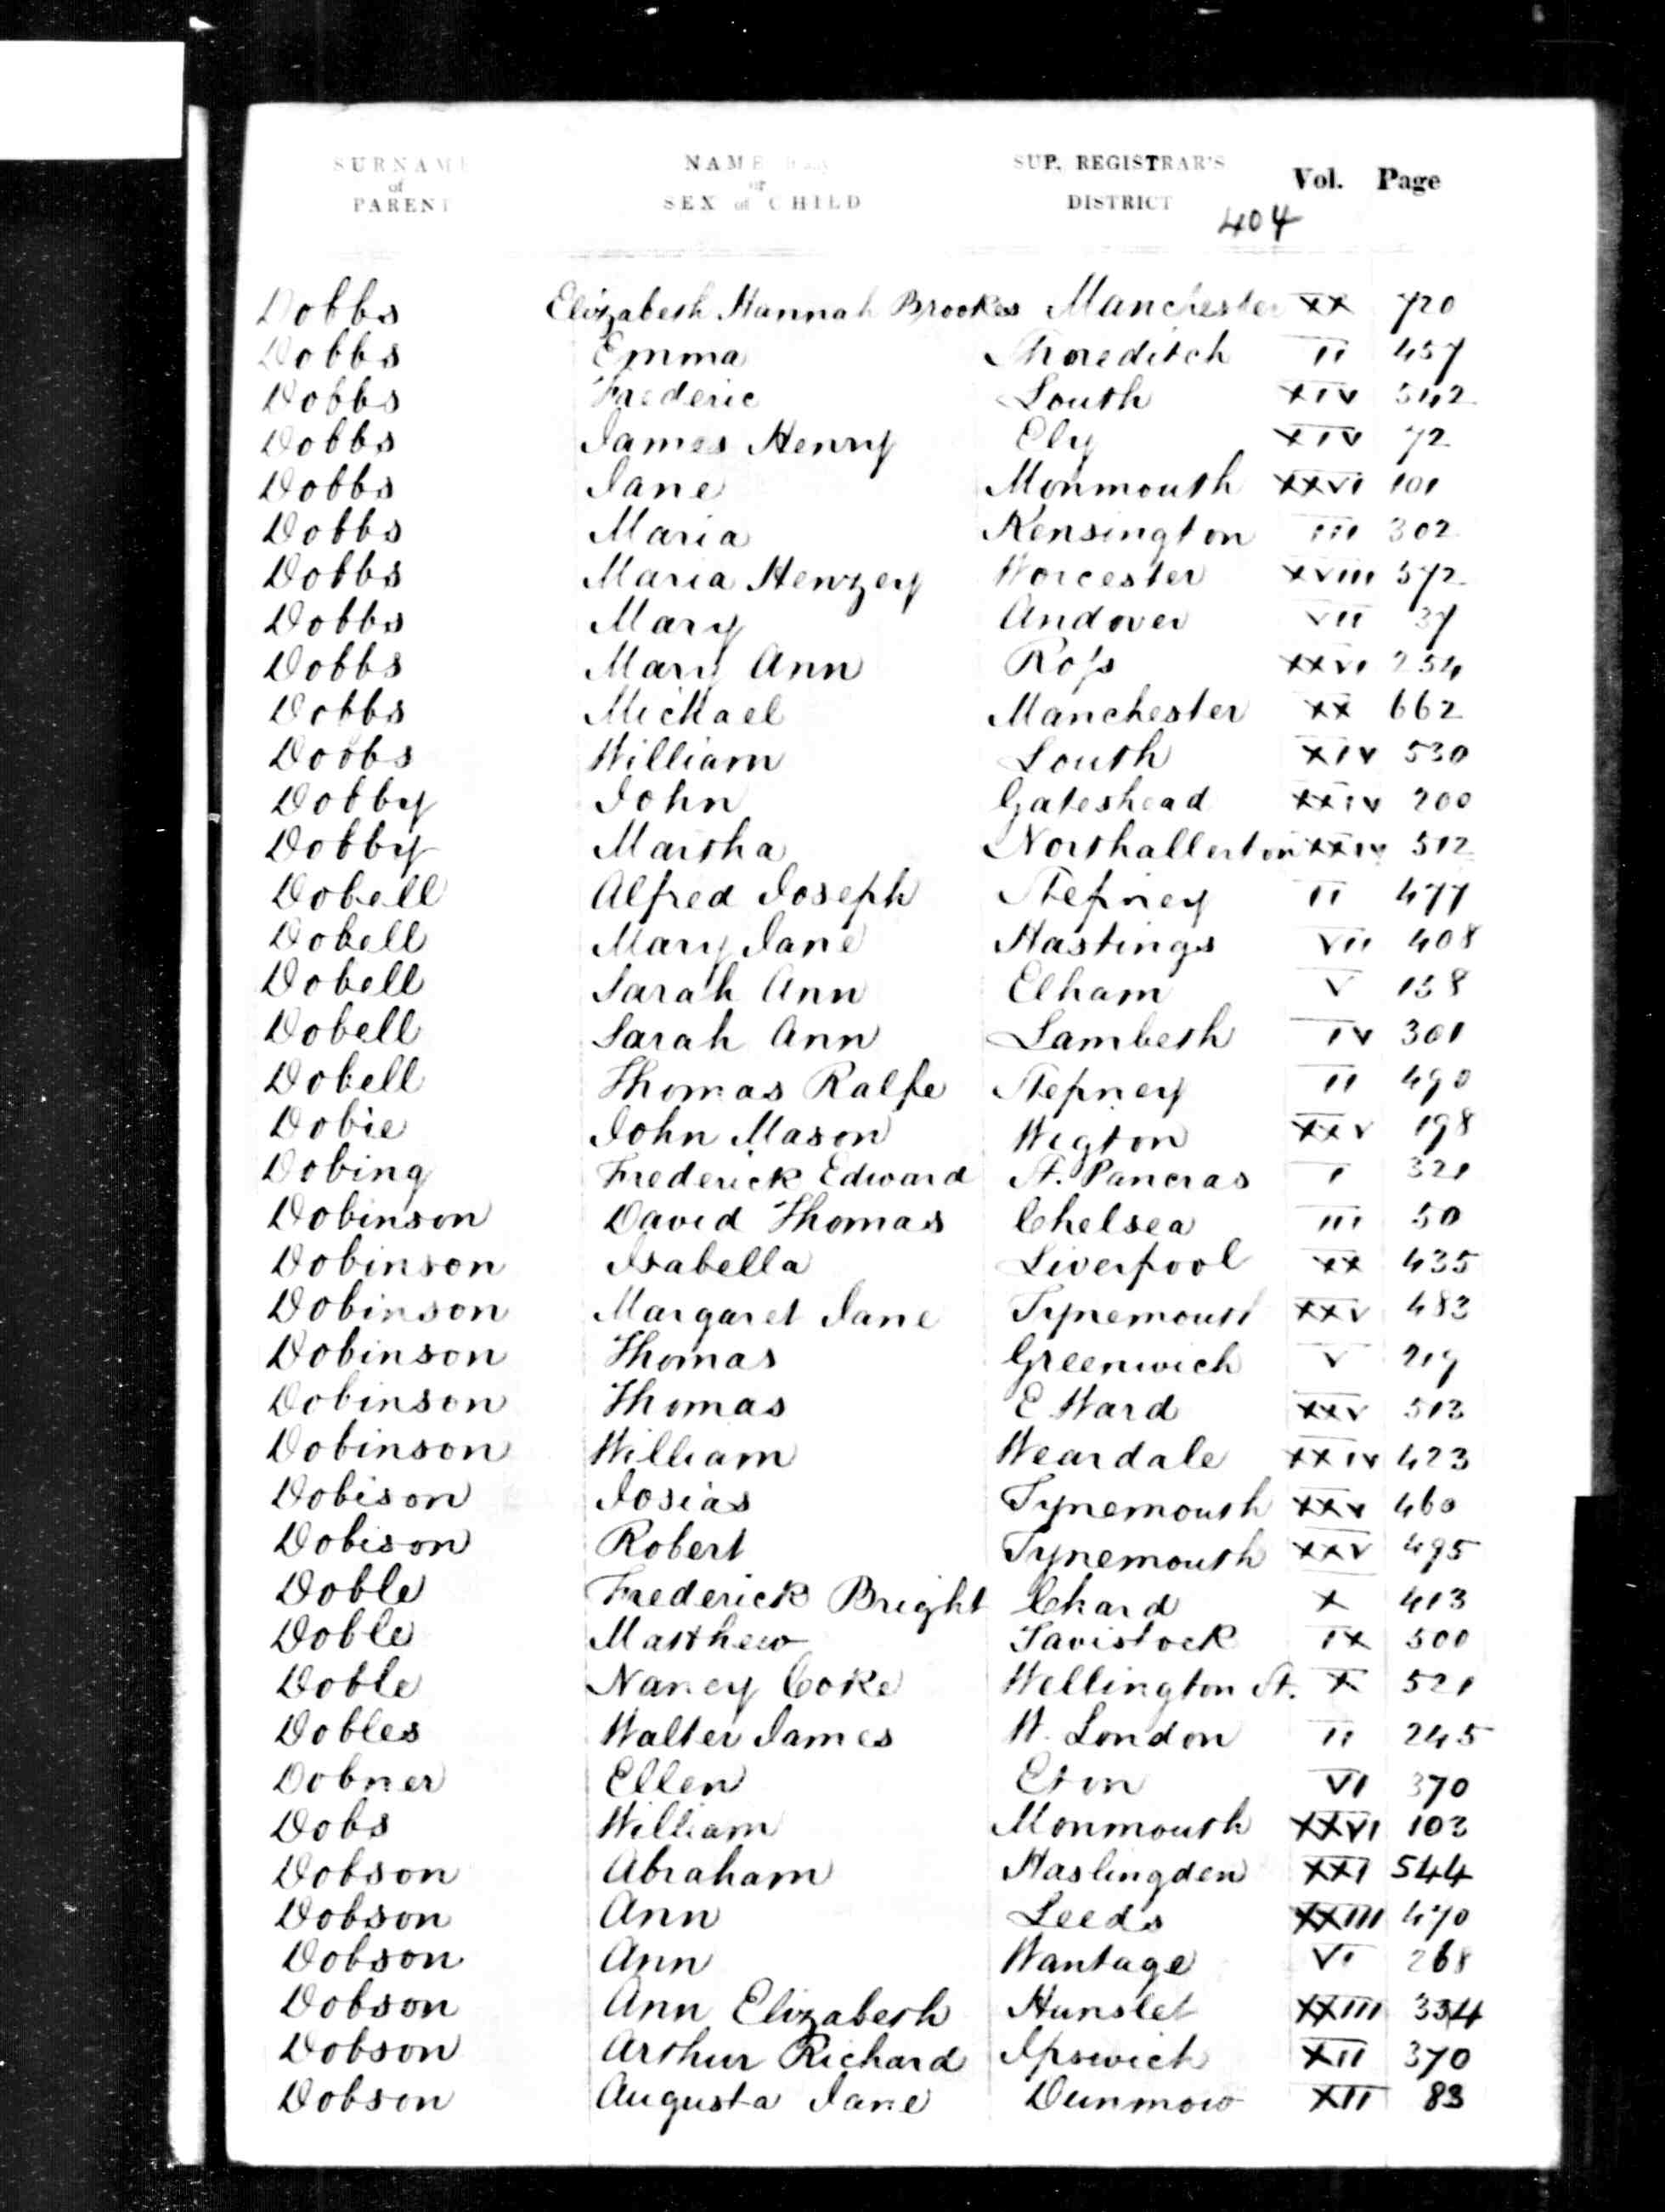 SURNAME of PARENT NAME or SEX of CHILD SUP. REGISTRAR'S DISTRICT Vol. Page
404
Dobbs Elizabeth Hannah Brookes Manchester XX 720
Dobbs Emma Shoreditch II 457
Dobbs Frederic Louth XIV 542
Dobbs James Henry Ely XIV 72
Dobbs Jane Monmouth XXVI 101
Dobbs Maria Kensington III 302
Dobbs Maria Henzey Worcester XVIII 572
Dobbs Mary Andover VII 37
Dobbs Mary Ann Ross XXVI 254
Dobbs Michael Manchester XX 662
Dobbs William Louth XIV 530
Dobby John Gateshead XXIV 200
Dobby Martha Northallerton XXIV 512
Dobell Alfred Joseph Stepney II 477
Dobell Mary Jane Hastings VII 408
Dobell Sarah Ann Elham V 158
Dobell Sarah Ann Lambeth IV 301
Dobell Thomas Ralfe Stepney II 490
Dobie John Mason Wigton XXV 198
Dobing Frederick Edward St. Pancras I 321
Dobinson David Thomas Chelsea III 50
Dobinson Isabella Liverpool XX 435
Dobinson Margaret Jane Tynemouth XXV 483
Dobinson Thomas Greenwich V 219
Dobinson Thomas E. Ward XXV 513
Dobinson William Weardale XXIV 423
Dobison Josias Tynemouth XXV 460
Dobison Robert Tynemouth XXV 495
Doble Frederick Bright Chard X 413
Doble Matthew Tavistock IX 500
Doble Nancy Coke Wellington St. X 521
Dobles Walter James W. London II 245
Dobner Ellen Eton VI 370
Dobs William Monmouth XXVI 103
Dobson Abraham Haslingden XXI 544
Dobson Ann Leeds XXIII 470
Dobson Ann Wantage VI 268
Dobson Ann Elizabeth Hunslet XXIII 334
Dobson Arthur Richard Ipswich XII 370
Dobson Augusta Jane Dunmow XII 83